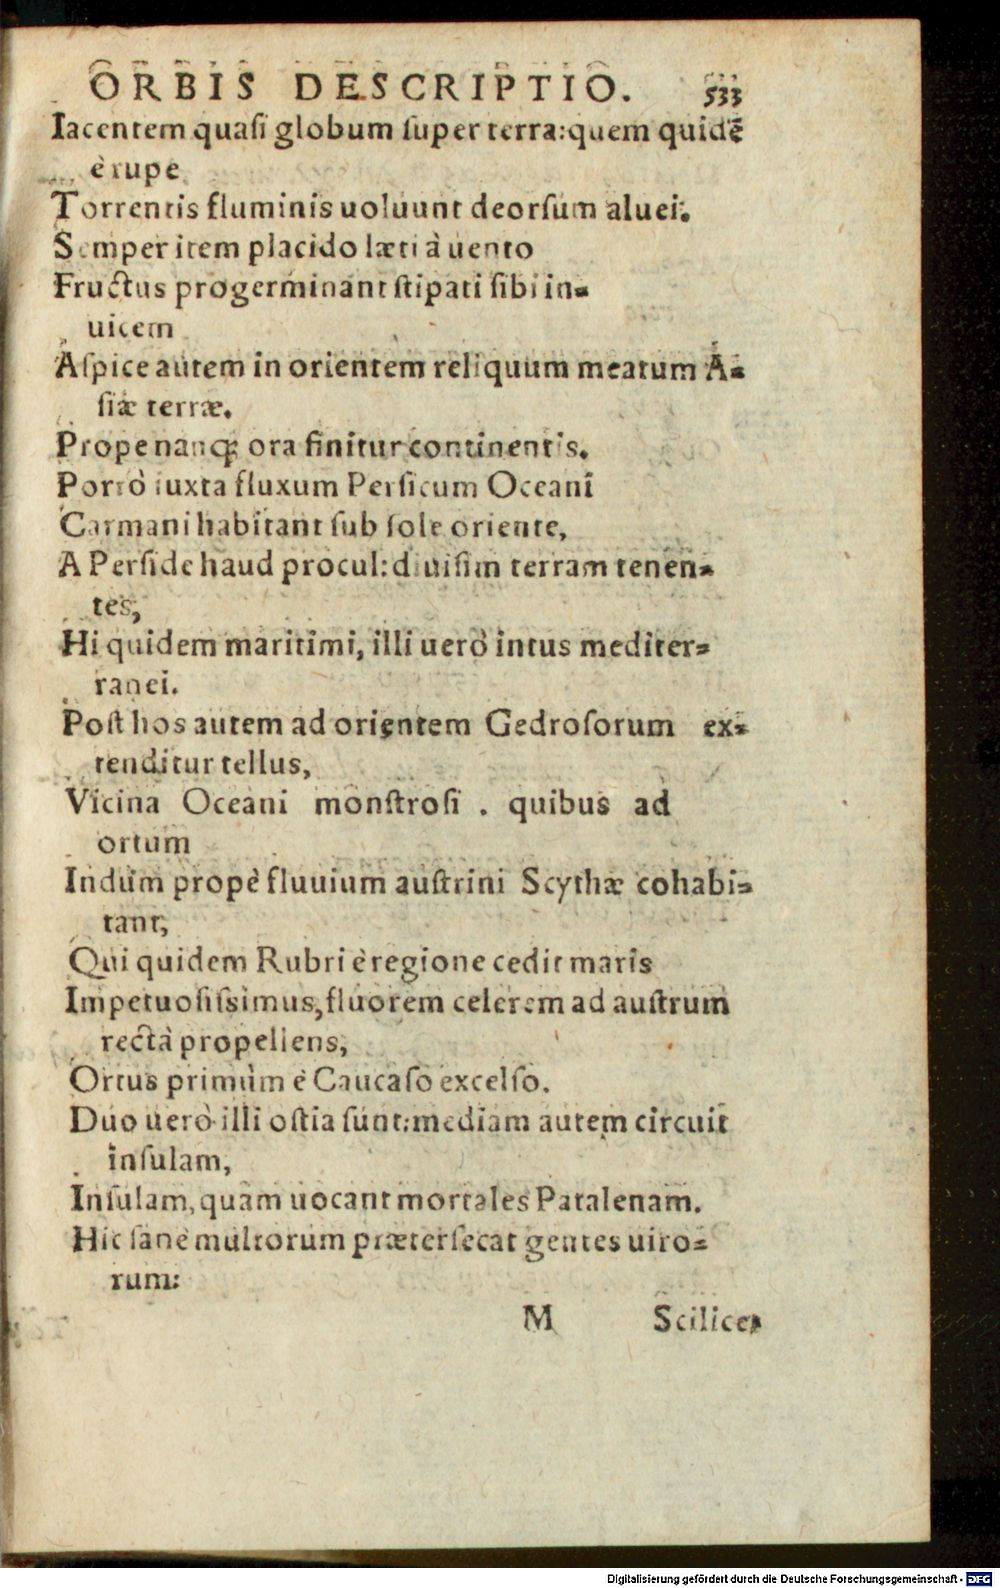 ORBIS DESCRIPTIO. 533
Iacentem quasi globum super terra: quem quidē
è rupe
Torrentis fluminis uoluunt deorsum aluei.
Semper item placido læti à uento
Fructus progerminant stipati sibi in-
uicem
Aspice autem in orientem reliquum meatum A-
siæ terræ.
Prope nanq; ora finitur continentis.
Porrò iuxta fluxum Persicum Oceani
Carmani habitant sub sole oriente,
A Perside haud procul: diuisim terram tenen-
tes,
Hi quidem maritimi, illi uerò intus mediter-
ranei.
Post hos autem ad orientem Gedrosorum ex-
tenditur tellus,
Vicina Oceani monstrosi . quibus ad
ortum
Indum propè fluuium austrini Scythæ cohabi-
tant,
Qui quidem Rubri è regione cedit maris
Impetuosissimus, fluorem celerem ad austrum
rectà propellens,
Ortus primùm è Caucaso excelso.
Duo uerò illi ostia sunt: mediam autem circuit
insulam,
Insulam, quam uocant mortales Patalenam.
Hic sanè multorum prætersecat gentes uiro-
rum:
M Scilicet
Digitalisierung gefördert durch die Deutsche Forschungsgemeinschaft - DFG